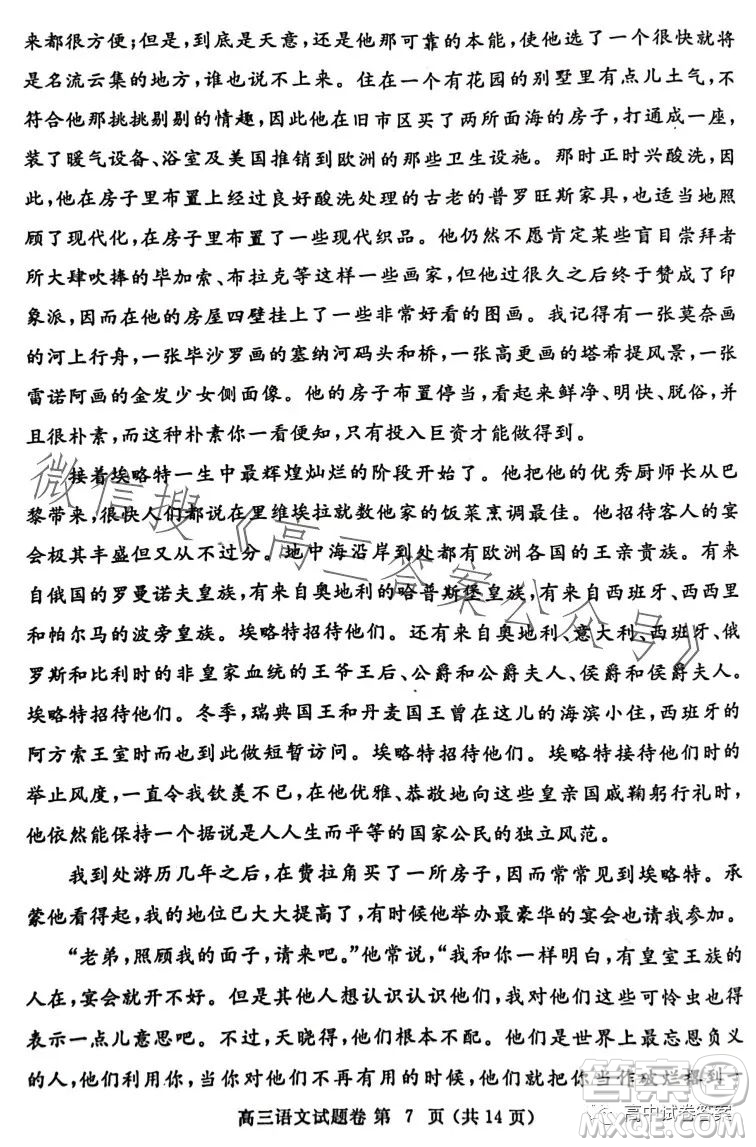 来都很方便；但是，到底是天意，还是他那可靠的本能，使他选了一个很快就将
是名流云集的地方，谁也说不上来。住在一个有花园的别墅里有点儿土气，不
符合他那挑挑剔剔的情趣，因此他在旧市区买了两所面海的房子，打通成一座，
装了暖气设备、浴室及美国推销到欧洲的那些卫生设施。那时正时兴酸洗，因
此，他在房子里布置上经过良好酸洗处理的古老的普罗旺斯家具，也适当地照
顾了现代化，在房子里布置了一些现代织品。他仍然不愿肯定某些盲目崇拜者
所大肆吹捧的毕加索、布拉克等这样一些画家，但他过很久之后终于赞成了印
象派，因而在他的房屋四壁挂上了一些非常好看的图画。我记得有一张莫奈画
的河上行舟，一张毕沙罗画的塞纳河码头和桥，一张高更画的塔希提风景，一张
雷诺阿画的金发少女侧面像。他的房子布置停当，看起来鲜净、明快、脱俗，并
且很朴素，而这种朴素你一看便知，只有投入巨资才能做得到。
接着埃略特一生中最辉煌灿烂的阶段开始了。他把他的优秀厨师长从巴
黎带来，很快人们都说在里维埃拉就数他家的饭菜烹调最佳。他招待客人的宴
会极其丰盛但又从不过分。地中海沿岸到处都有欧洲各国的王亲贵族。有来
自俄国的罗曼诺夫皇族，有来自奥地利的哈普斯堡皇族，有来自西班牙、西西里
和帕尔马的波旁皇族。埃略特招待他们。还有来自奥地利、意大利、西班牙、俄
罗斯和比利时的非皇家血统的王爷王后、公爵和公爵夫人、侯爵和侯爵夫人。
埃略特招待他们。冬季，瑞典国王和丹麦国王曾在这儿的海滨小住，西班牙的
阿方索王室时而也来此做短暂访问。埃略特招待他们。埃略特接待他们时的
举止风度，一直令我钦羡不已，在他优雅、恭敬地向这些皇亲国戚鞠躬行礼时，
他依然能保持一个据说是人人生而平等的国家公民的独立风范。
我到处游历几年之后，在费拉角买了一所房子，因而常常见到埃略特。承
蒙他看得起，我的地位已大大提高了，有时候他举办最豪华的宴会也请我参加。
“老弟，照顾我的面子，请来吧。”他常说，“我和你一样明白，有皇室王族的
人在，宴会就开不好。但是其他人想认识认识他们，我对他们这些可怜虫也得
表示一点儿意思吧。不过，天晓得，他们根本不配。他们是世界上最忘恩负义
的人，他们利用你，当他们不再有用的时候，他们就把你当作破烂摆到一
高三语文试题卷 第 7 页（共14页）
微信搜《高三答案公众号》
答案圈
高中试卷答案
MXQE.COM